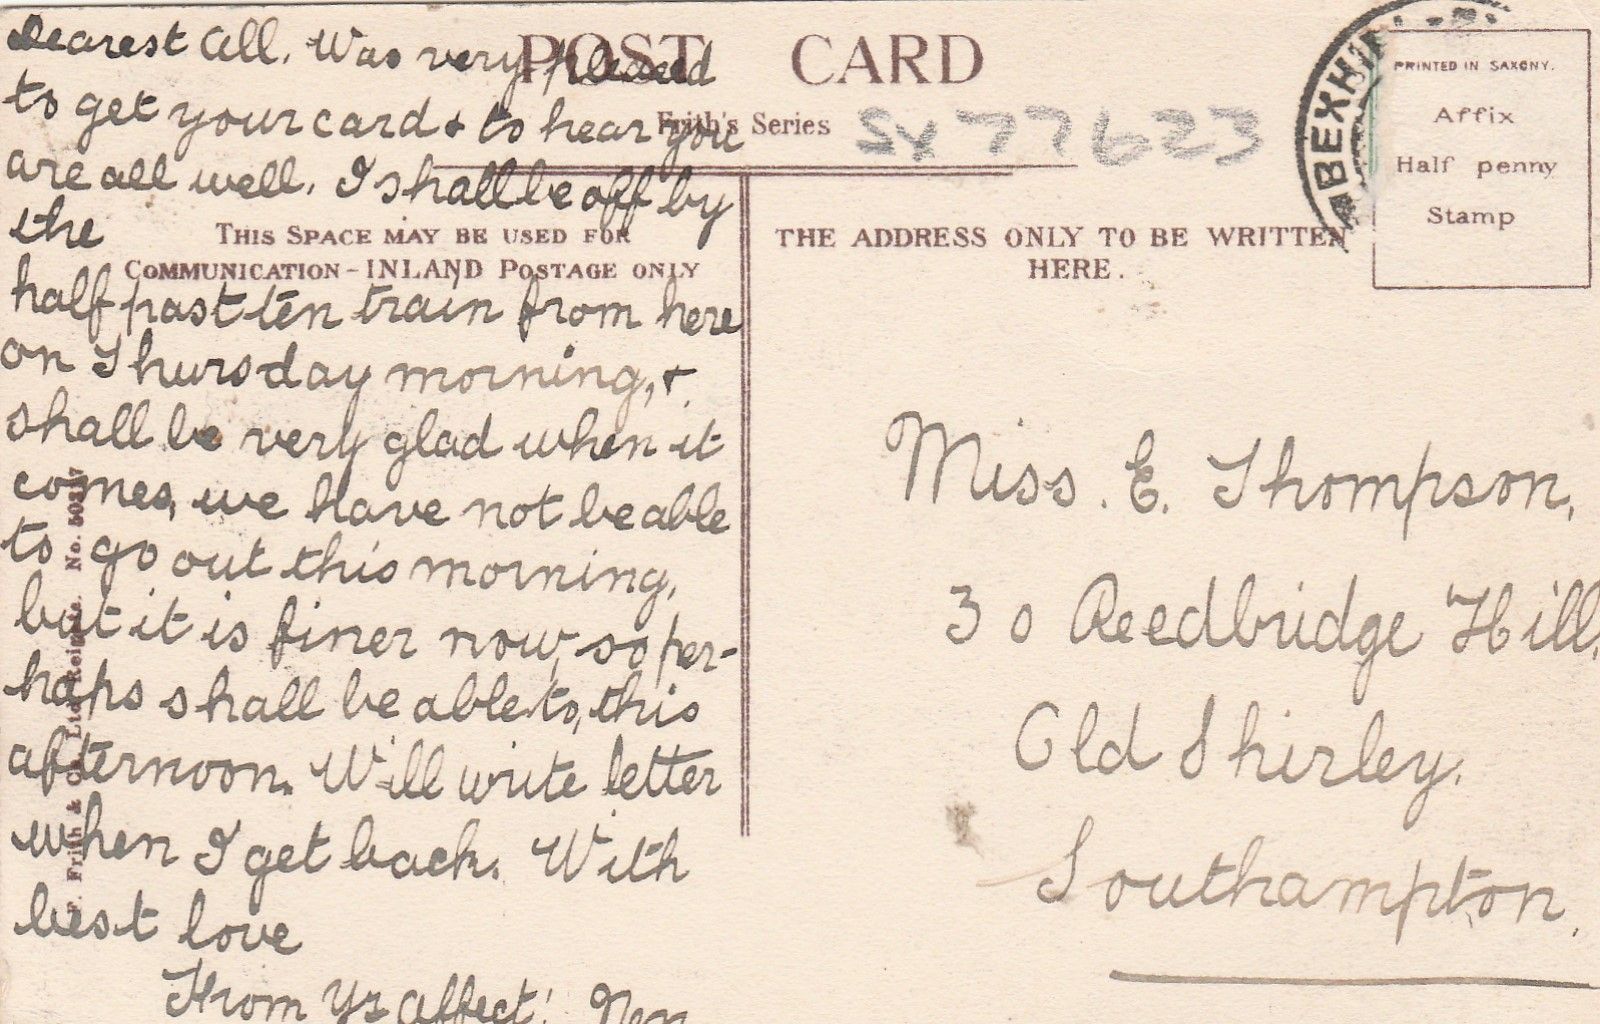 Dearest all. Was very pleased
to get your card & to hear you
are all well. I shall be off by
the
half past ten train from here
on Thursday morning, &
shall be very glad when it
comes, we have not be able
to go out this morning,
but it is finer now, so per-
haps shall be able to, this
afternoon. Will write letter
when I get back. With
best love
From Yr affect!
POST CARD
Frith's Series
SX 77623
THIS SPACE MAY BE USED FOR
COMMUNICATION - INLAND POSTAGE ONLY
THE ADDRESS ONLY TO BE WRITTEN
HERE.
BEXHI
PRINTED IN SAXONY.
Affix
Half penny
Stamp
Miss. E. Thompson,
30 Reedbridge Hill,
Old Shirley.
Southampton.
F. Frith & Co., Ltd. Reigate. No.